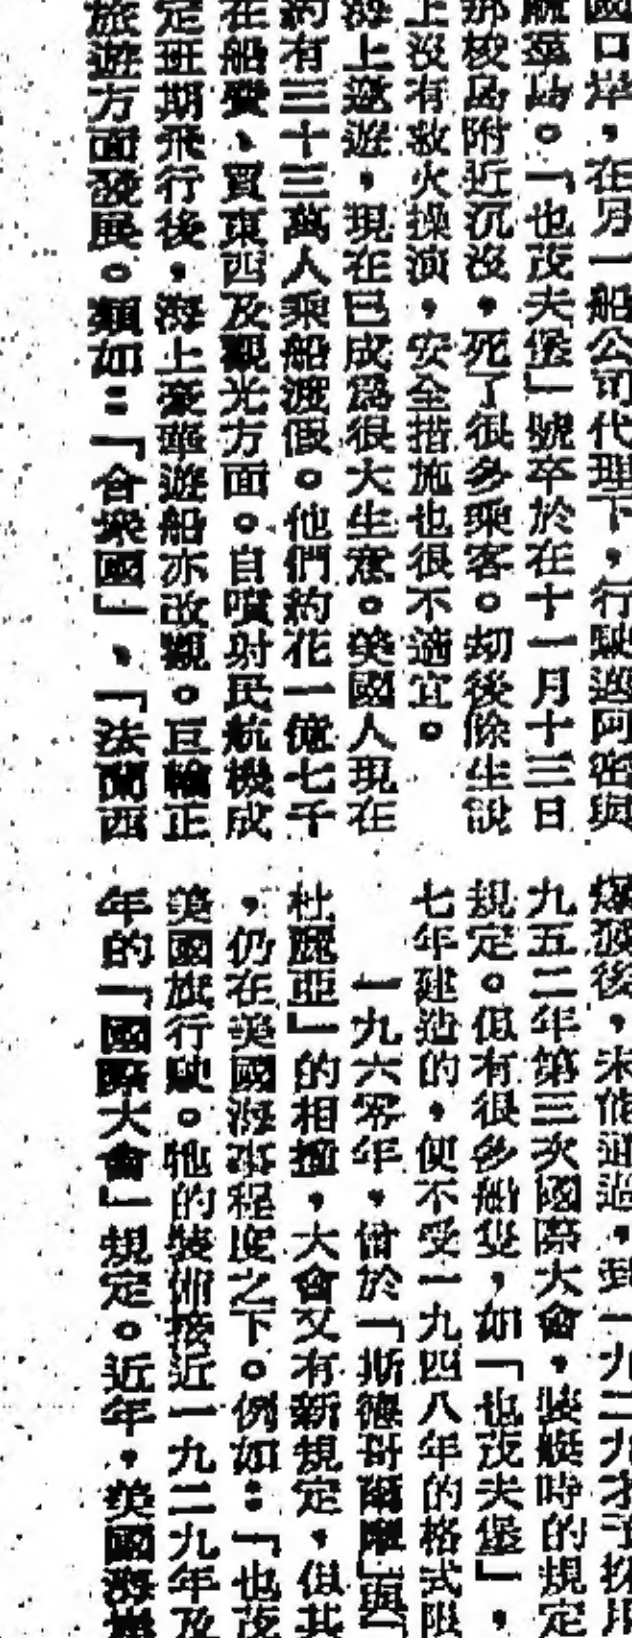 國口岸，在月一船公司代理下，行駛邁阿密與
航羣島。「也茂夫堡」號卒於在十一月十三日
那梭島附近沉沒，死了很多乘客。刧後餘生說
上沒有救火操演，安全措施也很不適宜。
海上遨遊，現在已成爲很大生意。美國人現在
約有三十三萬人乘船渡假。他們約花一億七千
在船費、買東西及觀光方面。自噴射民航機成
定班期飛行後，海上豪華遊船亦改觀。巨輪正
旅遊方面發展。類如：「合衆國」，「法蘭西
爆波後，未能通過，到一九二九才予採用
九五二年第三次國際大會，裝艇時的規定
規定。但有很多船隻，如「也茂夫堡」，
七年建造的，便不受一九四八年的格式限
一九六零年，曾於「斯德哥爾摩」與「
杜麗亞」的相撞，大會又有新規定，但其
，仍在美國海事程度之下。例如：「也茂
美國旗行駛。牠的裝備接近一九二九年及
年的「國際大會」規定。近年，美國海岸